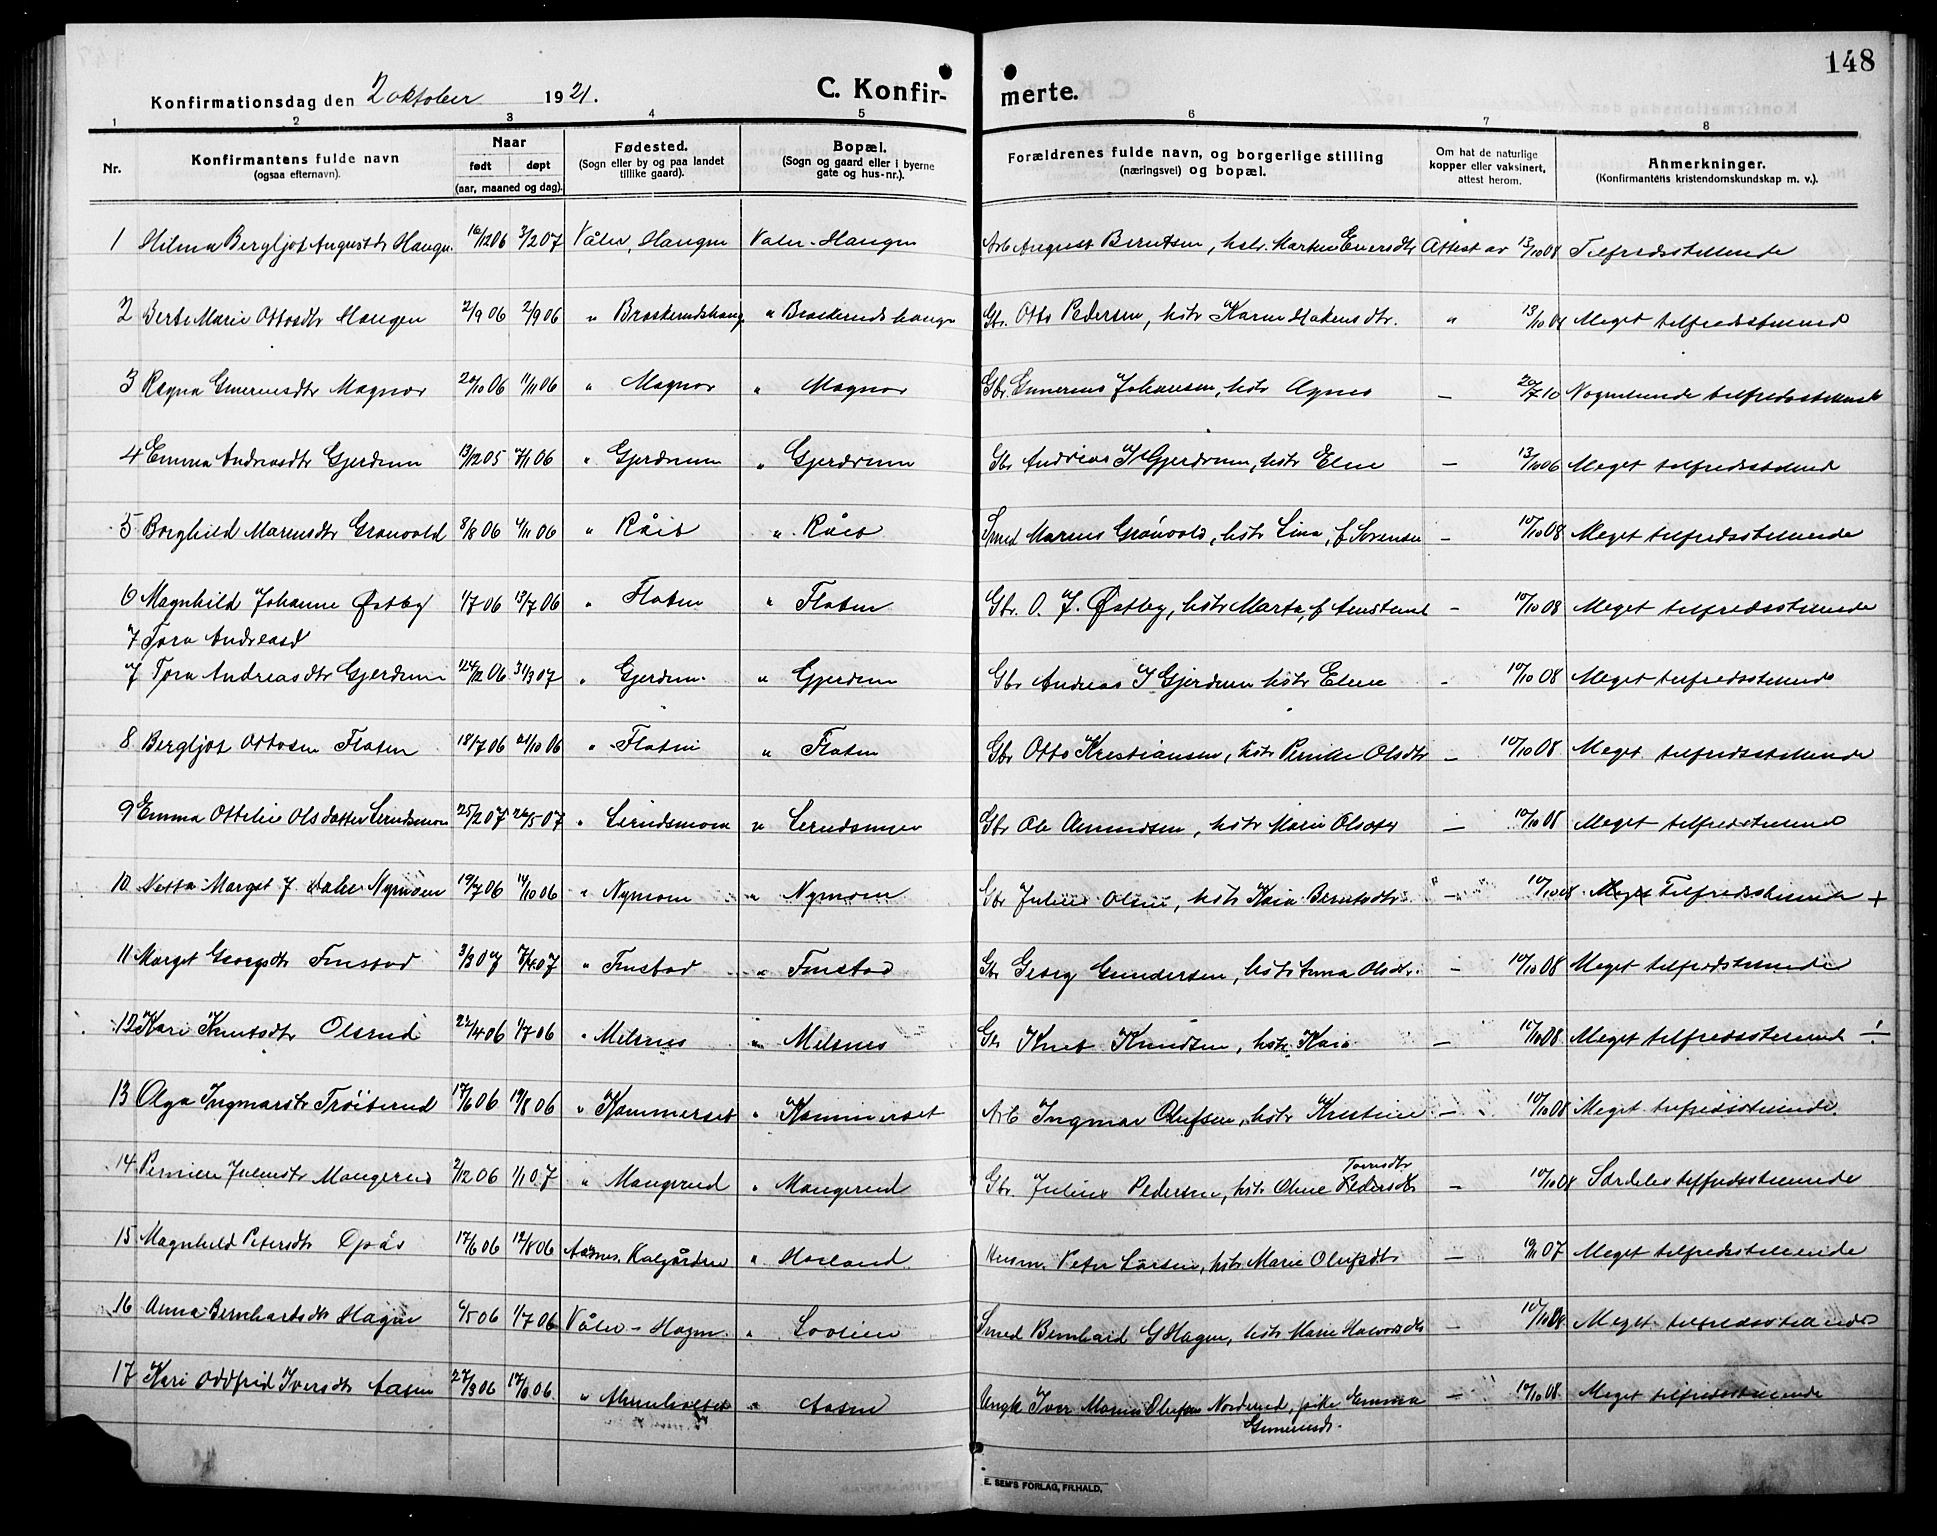 148
Konfirmationsdag den 2 oktober 1921. C. Konfir- merte.
1 2 3 4 5 6 7 8
Nr. Konfirmantens fulde navn (ogsaa efternavn). Naar født døpt (aar, maaned og dag). Fødested. (Sogn eller by og paa landet tillike gaard). Bopæl. (Sogn og gaard eller i byerne gate og hus-nr.). Forældrenes fulde navn, og borgerlige stilling (næringsvei) og bopæl. Om hat de naturlige kopper eller vaksinert, attest herom. Anmerkninger. (Konfirmantens kristendomskundskap m. v.).
1 Hilma Bergljot Augustdr Haugen 16/12 06 3/2 07 Våler, Haugen Valer - Haugen Arb August Berntsen, hstr. Marten Eversdtr Attest av 13/10 08 Tilfredsstillende
2 Berte Marie Ottosdtr Haugen 2/9 06 2/9 06 " Braskerudshaug " Braskeruds haugen Gbr. Otto Pedersen, hstr Karen Hakensdtr. " 13/10 08 Meget tilfredsstillend
3 Ragna Gunerusdtr Magnor 20/10 06 11/11 06 " Magnor " Magnor Gbr. Gunerius Johansen, hstr Agnes — 20/7 10 Nogenlunde tilfredsstillende
4 Emma Andreasdtr Gjerdrum 13/12 05 7/1 06 " Gjerdrum " Gjerdrum Gbr Andreas J Gjerdrum, hstr Eline — 13/10 06 Meget tilfredsstillend
5 Borghild Mariusdtr Grønvold 8/8 06 4/11 06 " Råis " Råis Smed Marius Grønvold, hstr Lina, f Sørensen — 10/10 08 Meget tilfredsstillende
6 Magnhild Johanne Østby 1/7 06 13/7 06 " Flaten " Flaten Gbr. O. J. Østby, hstr Marta, f — 10/10 08 Meget tilfredsstillende
7 Tora Andreasd
7 Tora Andreasdtr Gjerdrum 24/12 06 31/3 07 " Gjerdrum " Gjerdrum Gbr Andreas J Gjerdrum hstr Eline - 10/10 08 Meget tilfredsstillende
8 Bergljot Ottosen Flaten 18/7 06 21/10 06 " Flaten " Flaten Gbr Otto Kristiansen, hstr Pernille Olsdtr — 10/10 08 Meget tilfredsstillende
9 Emma Ottelie Olsdatter Lerudsmoen 25/2 07 26/5 07 " Lerudsmoen " Lerudsmoen Gbr Ole Amundsen, hstr Marie Olsdtr — 10/10 08 Meget tilfredsstillende
10 Netta Marget J. Nymoen 19/7 06 14/10 06 " Nymoen " Nymoen Gbr Julius Olsen, hstr Kaia Berntsdtr " — 10/10 08 Meget Tilfredsstillende +
11 Marget Georgsdtr Finstad 3/3 07 7/4 07 " Finstad " Finstad Gbr Georg Gundersen, hstr Anna Olsdtr. — 10/10 08 Meget tilfredsstillende
12 Kari Knutsdtr Olsrud 22/4 06 1/7 06 " Melsnes " Melsnes Gbr Knut Knudsen, hstr. Kaia — 10/10 08 Meget tilfredsstillend ÷
13 Olga Ingmarsdtr Trøiterud 17/6 06 19/8 06 " Kammerset " Kammerset Arb Ingmar Olufsen, hstr Kristine — 10/10 08 Meget tilfredsstillende
14 Pernien Juliusdtr Mangerud 2/12 06 1/1 07 " Mangerud " Mangerud Gbr. Julius Pedersen, hstr Oline Toresdtr Pedersdtr — 10/10 08 Særdeles tilfredsstillende
15 Magnhild Petersdtr Opås 17/6 06 12/8 06 Aasnes, Kalgården " Haaland Husm. Peter Larsen, hstr Marie Olufsdtr — 10/11 07 Meget tilfredsstillende
16 Anna Bernhardsdtr Hagen 6/5 06 1/7 06 Våler - Hagen. " Lovlien Smed Bernhard G Hagen, hstr Marie Halvorsdtr — 10/10 08 Meget tilfredsstillende
17 Kari Oddfrid Iversdtr Aasen 27/3 06 17/6 06 " " Aasen Ungk Iver Marius Olufsen Norderud, pike Emma Gunerusdtr. — 10/10 08. Meget tilfredsstillende
E. SEM'S FORLAG, FR.HALD.